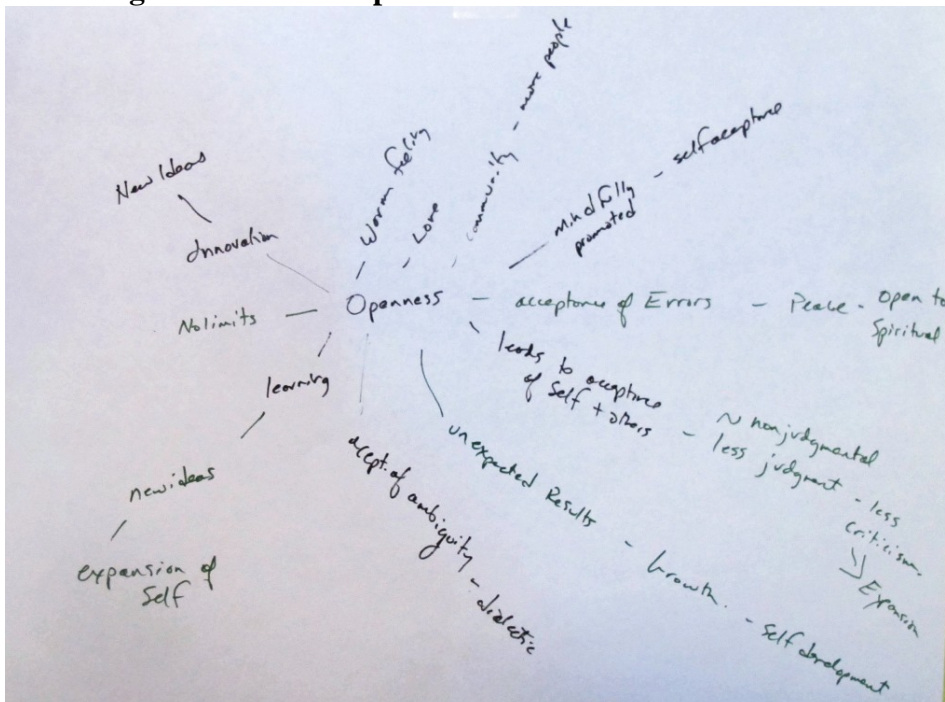 New Ideas
Innovation
No limits
learning
new ideas
expansion of
Self
Warm feeling
Love
community - more people
mindfully
promoted
- self acceptance
Openness
acceptance of Errors - Peace - Open to
Spiritual
leads to acceptance
of Self + others
~ nonjudgmental
- less judgment - less
criticism.
Expansion
unexpected Results - Growth. - self development
accept. of ambiguity - dialectic